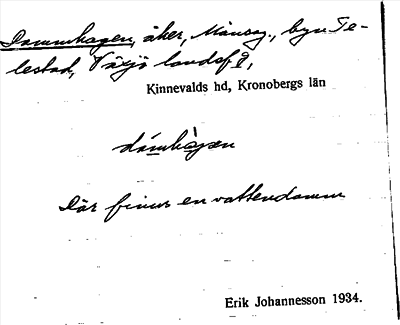 Dammhagen, åker, Månsg., byn Te-
lestad, Växjö landsf.,
Kinnevalds hd, Kronobergs län
dámhàgen
Där finns en vattendamm
Erik Johannesson 1934.